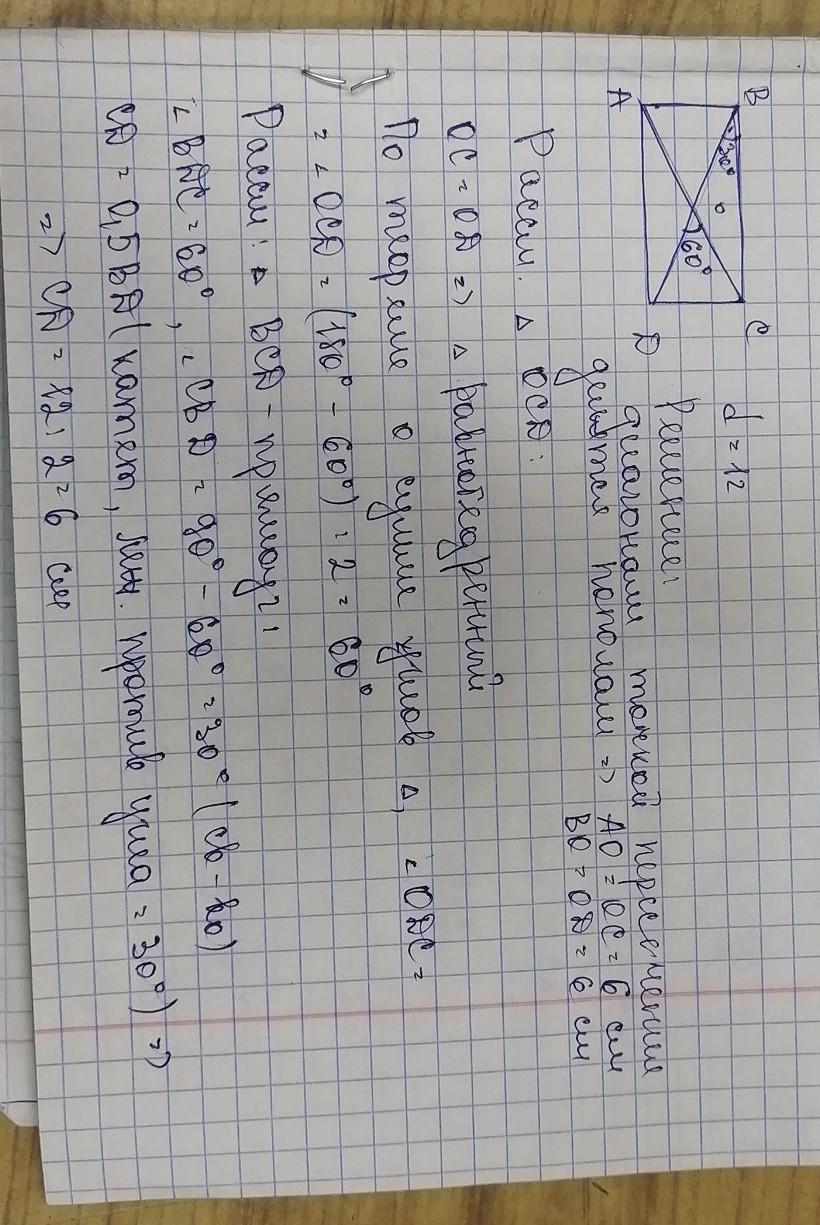 B
C
d = 12
30°
o
60°
A
D
Решение:
диагонали точкой пересечения
делятся пополам => AO = OC = 6 см
BO = OD = 6 см
Рассм. △ OCD:
OC = OD => △ равнобедренный
По теореме о сумме углов △, ∠ODC =
= ∠OCD = (180° - 60°) : 2 = 60°
Рассм: △ BCD - прямоуг:
∠BDC = 60°, ∠CBD = 90° - 60° = 30° (св-во)
CD = 0,5 BD (катет, леж. против угла = 30°) =>
=> CD = 12 : 2 = 6 см